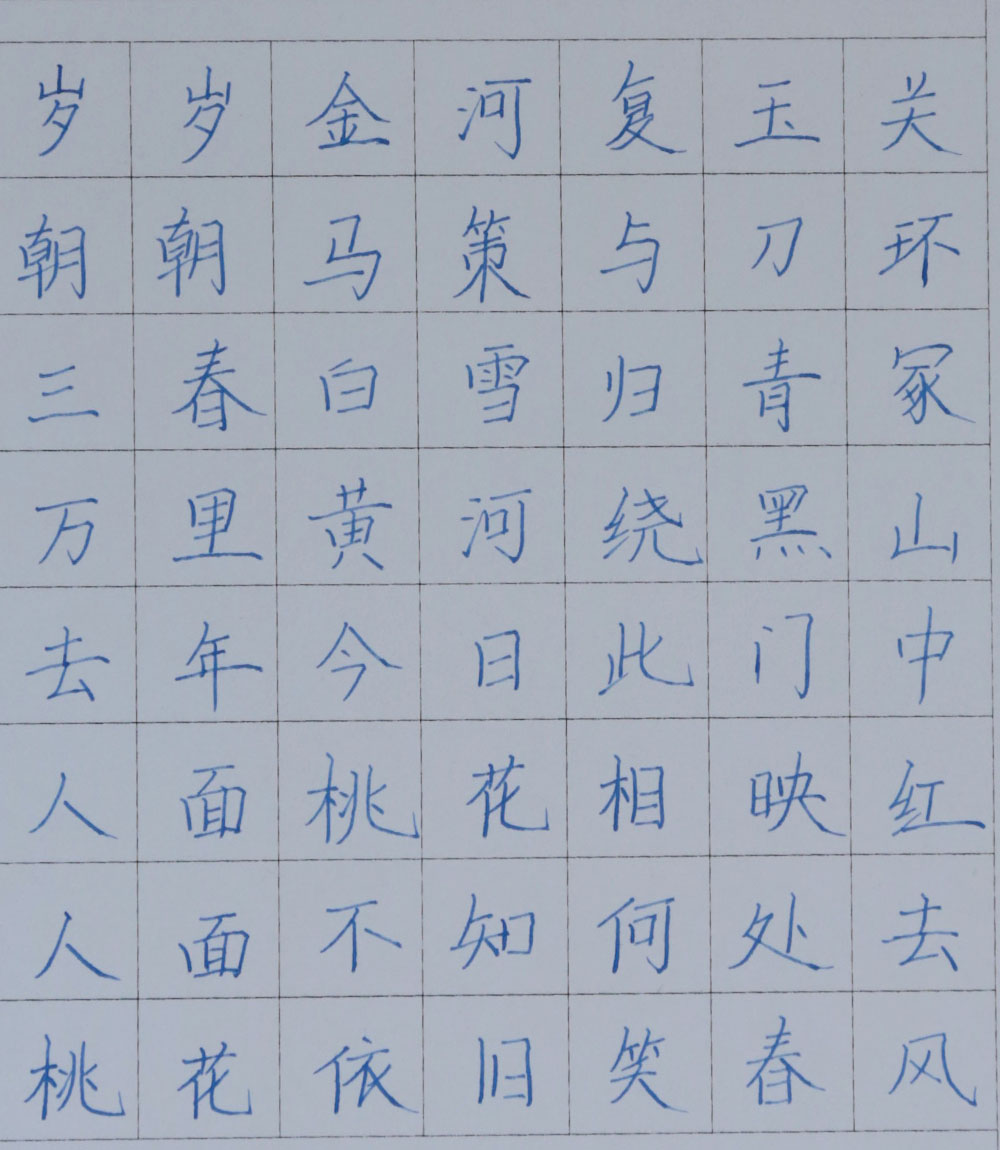 岁岁金河复玉关
朝朝马策与刀环
三春白雪归青冢
万里黄河绕黑山
去年今日此门中
人面桃花相映红
人面不知何处去
桃花依旧笑春风